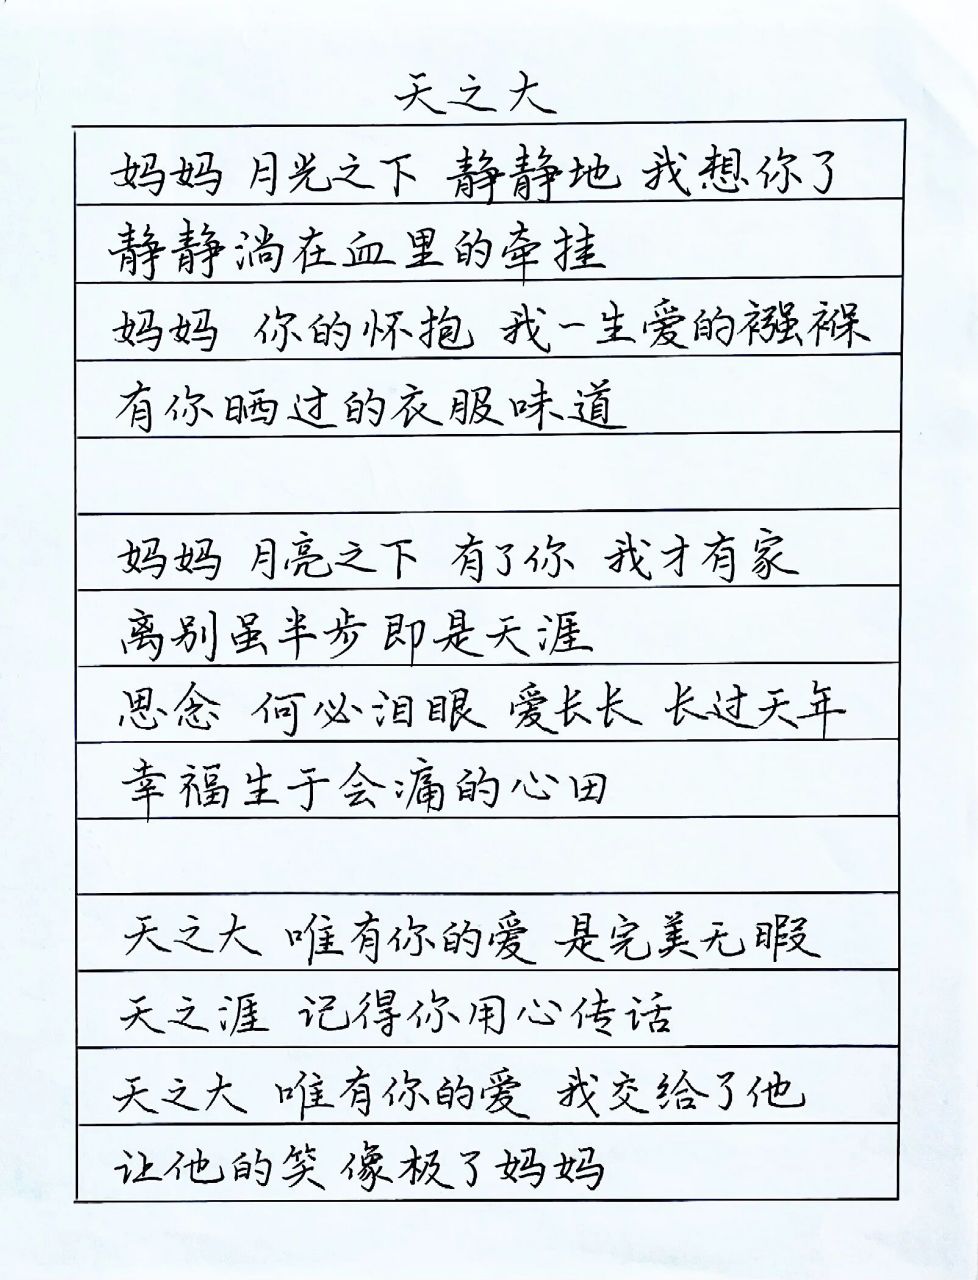 天之大
妈妈 月光之下 静静地 我想你了
静静淌在血里的牵挂
妈妈 你的怀抱 我一生爱的襁褓
有你晒过的衣服味道
妈妈 月亮之下 有了你 我才有家
离别虽半步即是天涯
思念 何必泪眼 爱长长 长过天年
幸福生于会痛的心田
天之大 唯有你的爱 是完美无暇
天之涯 记得你用心传话
天之大 唯有你的爱 我交给了他
让他的笑像极了妈妈